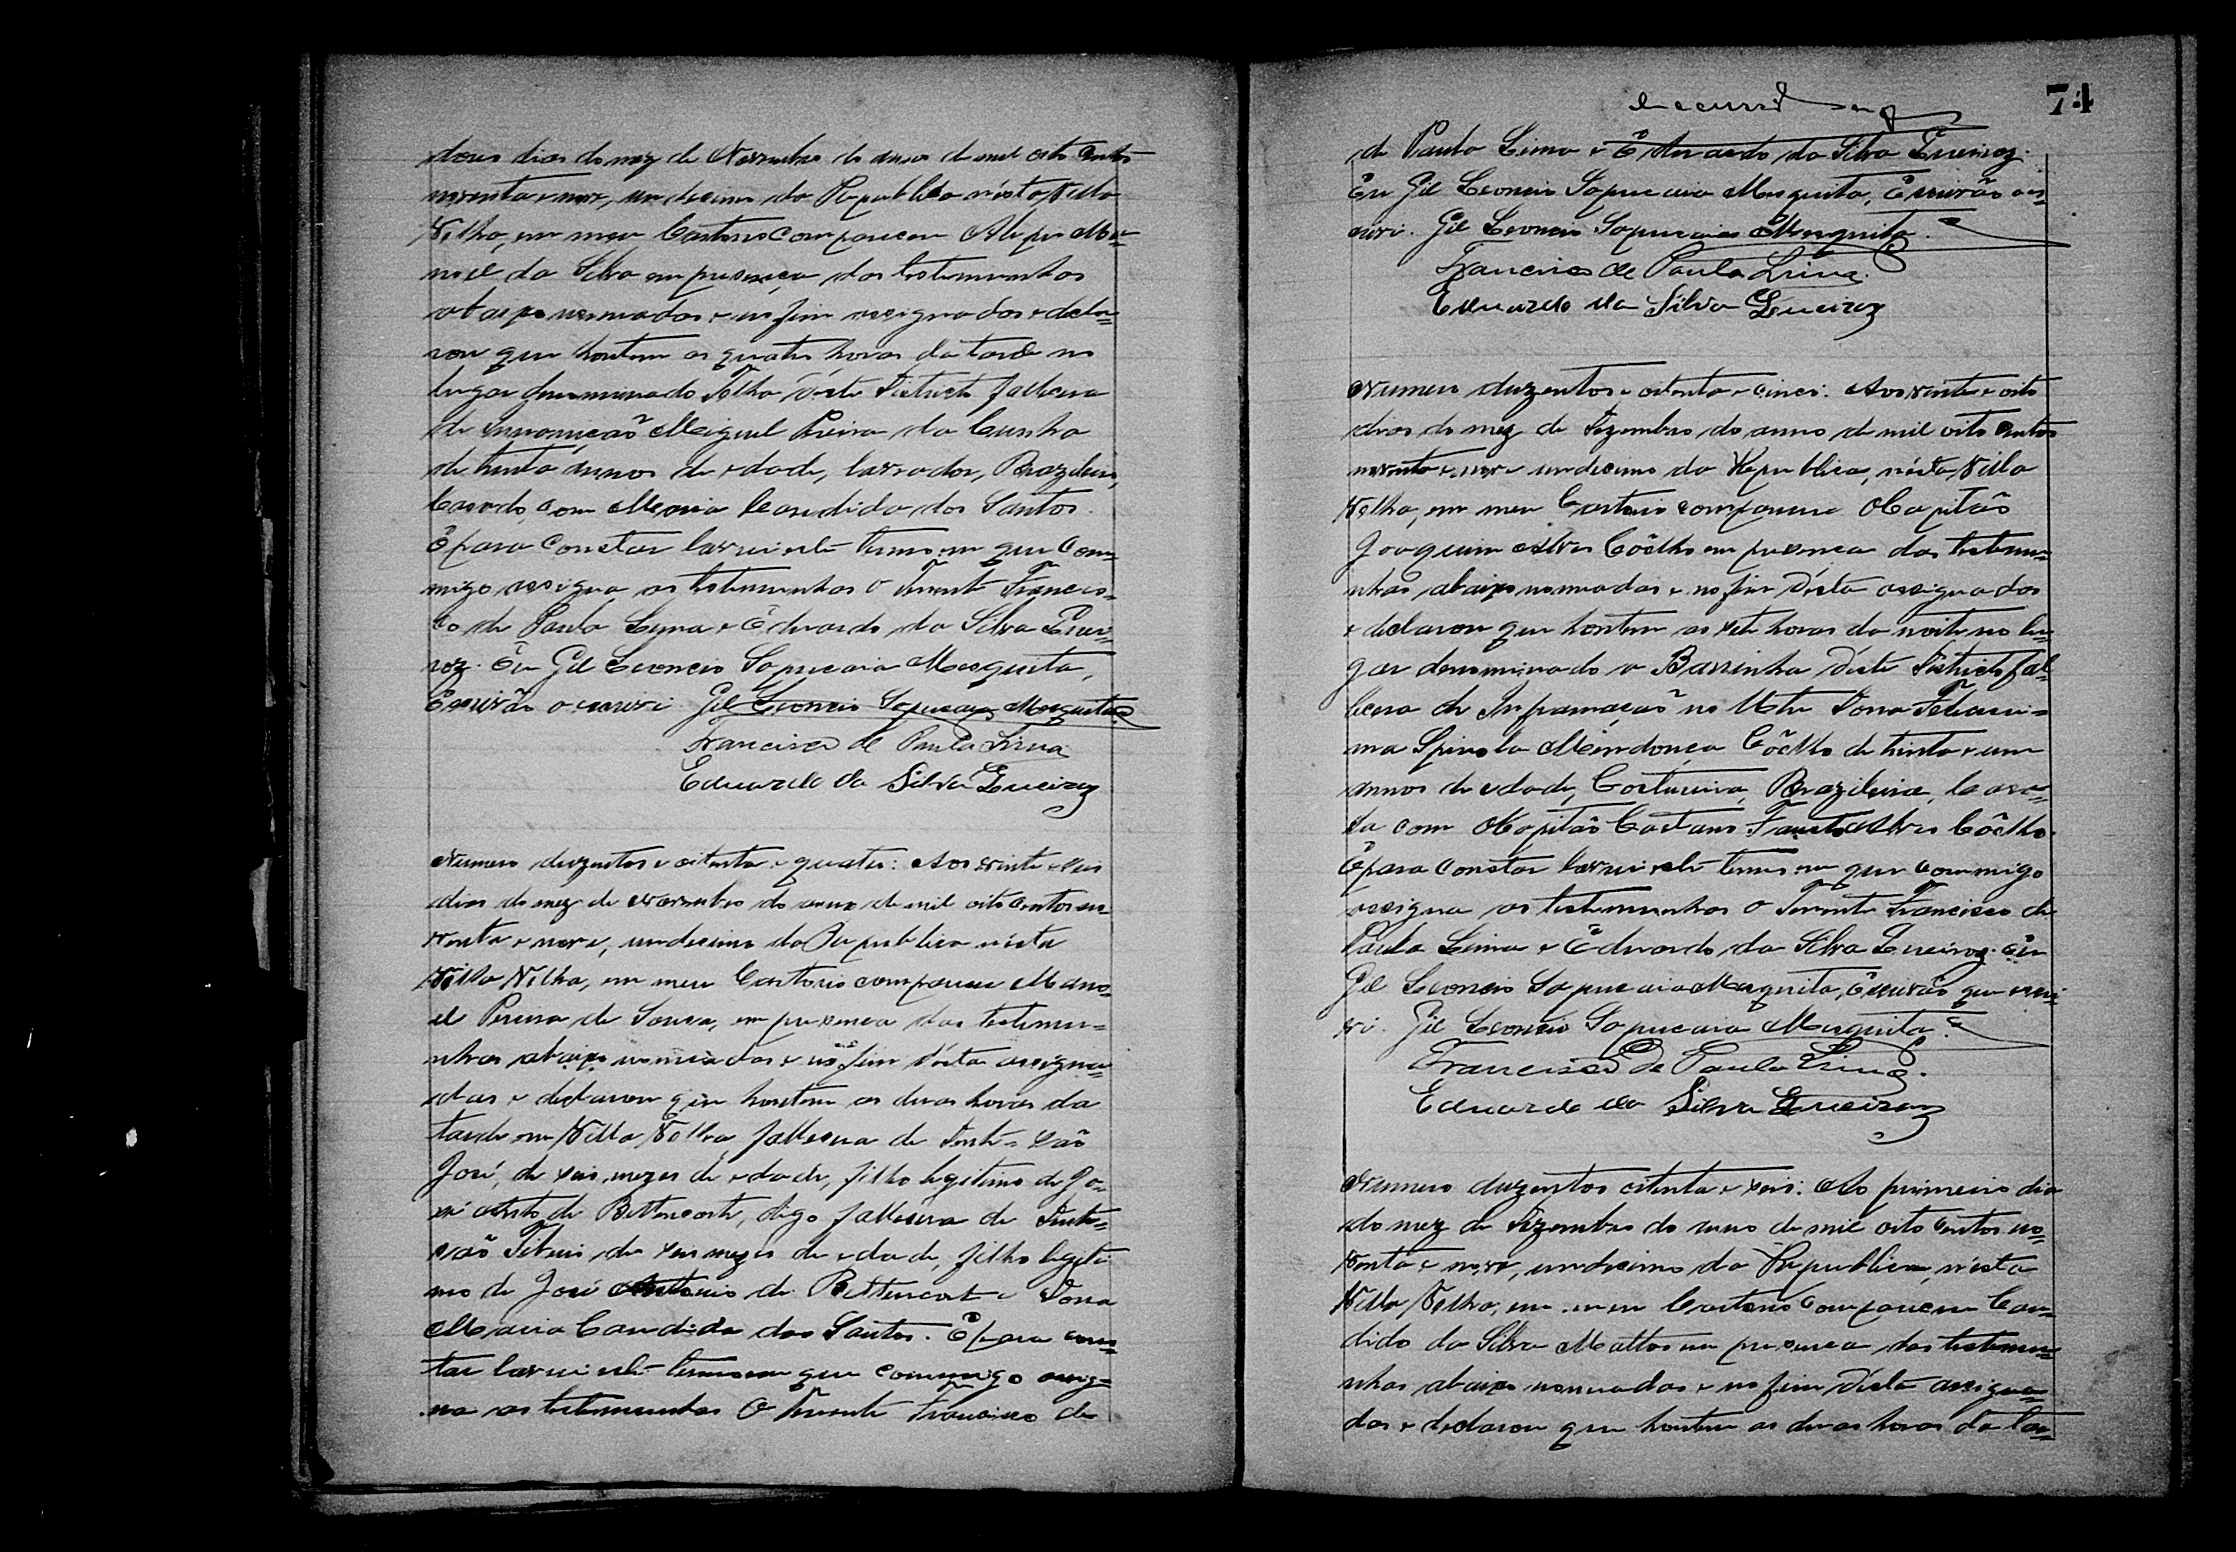 dous dias do mez de Novembro do anno de mil oito centos
noventa e nove, undecimo da Republica nésta Villa
Velha, em meu Cartorio compareceu Ma-
noel da Silva em presença das testemunhas
abaixo nomiadas e no fim assignadas e decla-
rou que hontem as quatro horas da tarde no
lugar denominado Volta d'éste Districto falleceu
de Miguel Vieira da Cunha
de trinta annos de edade, lavrador, Brazileiro,
Casado, com Maria Candida dos Santos.
E para constar lavrei este termo em que com-
migo assigna as testemunhas o Tenente Francis-
co de Paula Lyma e Eduardo da Silva Quei-
roz. Eu Gil Leoncio Sapucaia Mesquita,
Escrivão o escrevi. Gil Leoncio Sapucaia Mesquita
Francisco de Paula Lima
Eduardo da Silva Queiroz
Numero duzentos e oitenta e quatro: Aos vinte e seis
dias do mez de Novembro do anno de mil oito centos no-
venta e nove, undecimo da Republica nésta
Villa Velha, em meu Cartorio compareceu Mano-
el Pereira de Souza, em presença das testemu-
nhas abaixo nomiadas e no fim d'ésta assigna-
das e declarou que hontem as duas horas da
tarde em Villa Velha falleceu de
José, de seis mezes de edade, filho legitimo de Jo-
sé de Bettencort, digo falleceu de
de seis mezes de edade, filho legiti
mo de José Antonio de Bettencort e Dona
Maria Candida dos Santos. E para cons-
tar lavrei este termo em que commigo assig-
na as testemunhas O Tenente Francisco de
74
de Paula Lima e Eduardo da Silva Queiroz.
Eu Gil Leoncio Sapucaia Mesquita, Escrivão o es-
crevi. Gil Leoncio Sapucaia Mesquita.
Francisco de Paula Lima.
Eduardo da Silva Queiroz
Numero duzentos e oitenta e cinco: Aos vinte e oito
dias do mez de Dezembro do anno de mil oito centos
noventa e nove undecimo da Republica, nésta Villa
Velha, em meu Cartorio compareceu o Capitão
Joaquim Alves Coêlho em presença das testemu-
nhas abaixo nomiadas e no fim d'ésta assignadas
e declarou que hontem as sete horas da noite no lu-
gar denominado a Barrinha d'éste Districto fal-
leceu de Inflamação no Utero Dona
Spinola Mendonça Coêlho de trinta e um
annos de edade, Costureira, Brazileira, Casa-
da com o Capitão Caetano Fausto Alves Coêlho.
E para constar lavrei este termo em que commigo
assigna as testemunhas o Tenente Francisco de
Paula Lima e Eduardo da Silva Queiroz. Eu
Gil Leoncio Sapucaia Mesquita, Escrivão que escre-
vi. Gil Leoncio Sapucaia Mesquita.
Francisco de Paula Lima.
Eduardo da Silva Queiroz
Numero duzentos oitenta e seis: Ao primeiro dia
do mez de Dezembro do anno de mil oito centos no-
venta e nove, undecimo da Republica, nésta
Villa Velha, em meu Cartorio compareceu Can-
dido da Silva Mattos em presença das testemu-
nhas abaixo nomiadas e no fim d'ésta assigna-
das e declarou que hontem as duas horas da tar-